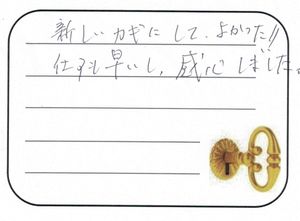 新しいカギにして、よかった!!
仕事も早いし、感心しました。